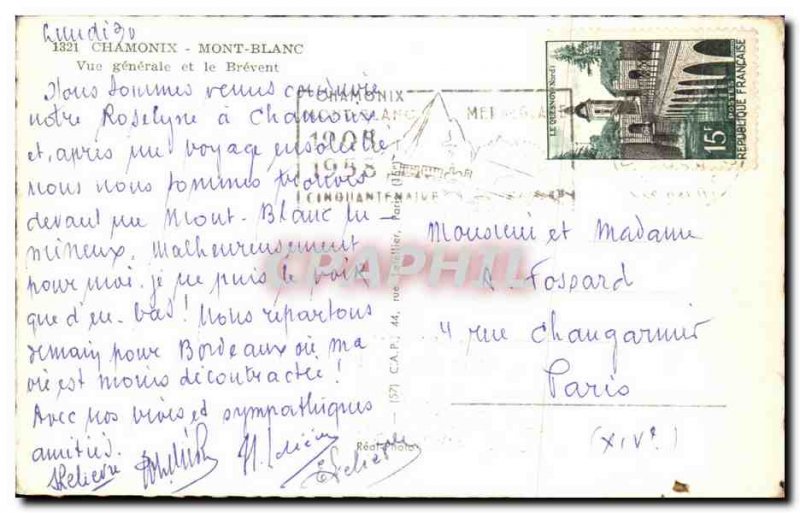 Lundi 30
1321 CHAMONIX - MONT-BLANC
Vue générale et le Brévent
Nous sommes venus conduire
notre Roselyne à Chamonix
et, après un voyage ensoleillé
nous nous sommes trouvés
devant un Mont-Blanc lu-
mineux. Malheureusement
pour moi je ne puis le voir
que d'en-bas! Nous repartons
demain pour Bordeaux où ma
vie est moins décontractée!
Avec nos vives et sympathiques
amitiés.
CHAMONIX
MONT-BLANC MER DE GLACE
1908
1958
CINQUANTENAIRE
LE QUESNOY (Nord)
15F
POSTES
REPUBLIQUE FRANÇAISE
(57) C.A.P., 44, rue Letellier, Paris (15e)
CPAPHIL
Monsieur et Madame
A. Fossard
4 rue Changarnier
Paris
(XIVe)
Réal-Photo